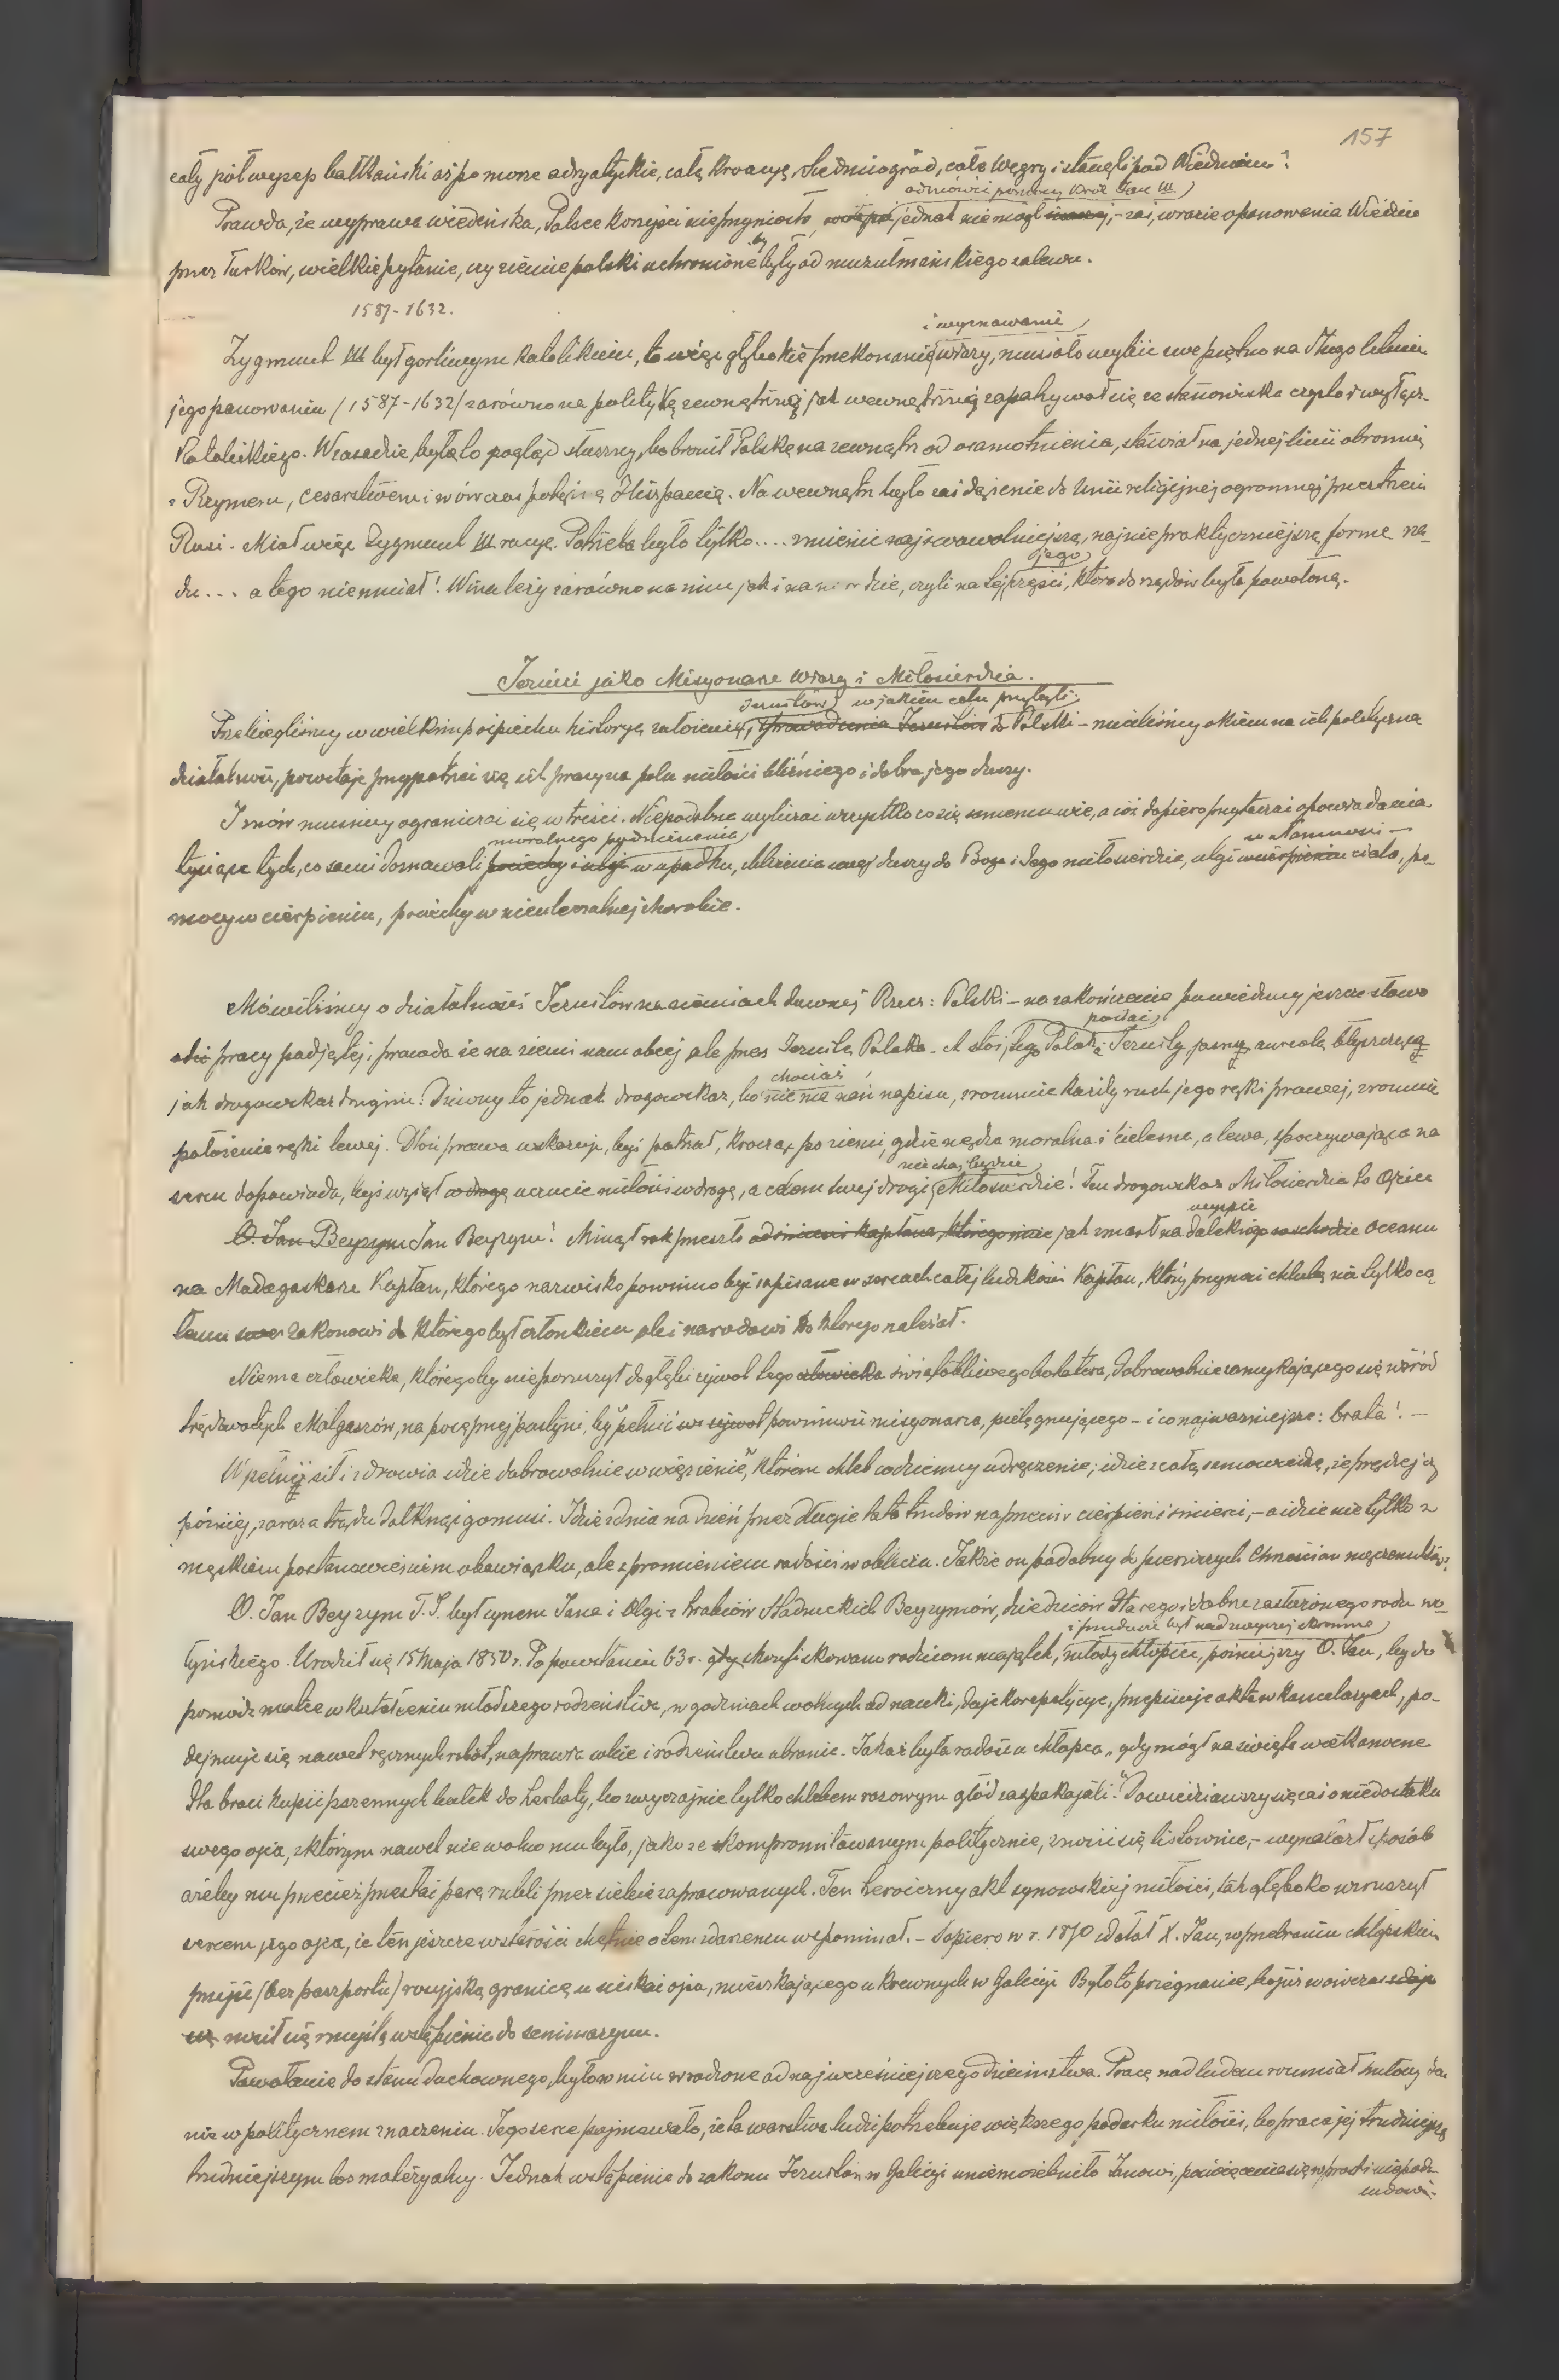 157
cały półwysep bałkański aż po morze adryatyckie, całą Kroacyę, Siedmiogród, całe Węgry i stanęli pod Wiedniem!
odmówić pomocy Król Jan III
Prawda, że wyprawa wiedeńska, Polsce korzyści nie przyniosła, jednak nie mógł inaczej, – zaś, w razie opanowania Wiednia
przez Turków, wielkie pytanie, czy ziemie polski uchronione by były od muzułmańskiego zalewu.
1587-1632.
i wyznawanie
Zygmunt III był gorliwym katolikiem, to więc głębokie przekonanie wiary, musiało wybić swe piętno na długoletniem
jego panowaniu (1587-1632) zarówno na politykę zewnętrzną jak wewnętrzną zapatrywał się ze stanowiska czysto i wyłącz.
Katolickiego. W zasadzie był to pogląd słuszny, bo bronił Polskę na zewnątrz od osamotnienia, stawiał na jednej linii obronnej
z Rzymem, cesarstwem i wówczas potężną Hiszpanią. Na wewnątrz było zaś dążenie do Unii religijnej ogromnej przestrzeni
Rusi. Miał więc Zygmunt III racyę. Potrzeba było tylko.... zmienić najswawolniejszą, najniepraktyczniejszą formę rzą-
jego
du... a tego nie umiał! Wina leży zarówno na nim jak i na narodzie, czyli na tej części, która do rządów była powołaną.
Jezuici jako Misyonarze Wiary i Miłosierdzia.
Jezuitów w jakiem celu przybyli
Przebiegliśmy w wielkim pośpiechu historyę założenia, sprowadzenia Jezuitów do Polski – rzuciliśmy okiem na ich polityczną
działalność, pozostaje przypatrzeć się ich pracy na polu miłości bliźniego i dobra jego duszy.
I znów musimy ograniczać się w treści. Niepodobna wyliczać wszystko co się samemu wie, a cóż dopiero przytaczać opowiadania
moralnego podniesienia w ułomności –
tysiące tych, co sami doznawali pociechy i ulgi w upadku, zbliżenia swej duszy do Boga i Jego miłosierdzia, ulgi w cierpieniu ciała, po-
mocy w cierpieniu, pociechy w nieuleczalnej chorobie.
Mówiliśmy o działalności Jezuitów na ziemiach dawnej Rzecz: Polski – na zakończenie powiedzmy jeszcze słowo
postać
o pracy podjętej, prawda że na ziemi nam obcej ale przez Jezuitę Polaka. A stoi, tego Polaka Jezuity, jasną aureolą błyszczącą
chociaż
jak drogowskaz drugim. Dziwny to jednak drogowskaz, bo nie ma nań napisu, zrozumie każdy ruch jego ręki prawej, zrozumie
położenie ręki lewej. Dłoń prawa wskazuje, byś patrzał, krocząc po ziemi, gdzie nędza moralna i cielesna, a lewa, spoczywająca na
niechaj będzie
sercu dopowiada, byś wziął w drogę uczucie miłości w drogę, a celem twej drogi Miłosierdzie! Ten drogowskaz Miłosierdzia to Ojciec
wyspie
O. Jan Beyzym Jan Beyzym! Minął rok przeszło od śmierci kapłana, którego imię jak zmarł na dalekiego wschodzie Oceanu
na Madagaskarze Kapłan, którego nazwisko powinno być zapisane w sercach całej ludzkości Kapłan, który przynosi chlubę nie tylko ca-
łemu zakonowi do którego był członkiem ale i narodowi do którego należał.
Niema człowieka, któregoby nie poruszył do głębi żywot tego człowieka świętobliwego bohatera, dobrowolnie zamykającego się wśród
trędowatych Malgaszów, na posępnej pustyni, by pełnić powinność misyonarza, pielęgnującego – i co najważniejsze: brata! –
W pełni sił i zdrowia idzie dobrowolnie w więzienie, którem chleb codzienny udręczenie; idzie z całą samowiedzą, że prędzej czy
później, zaraza trądu dotknąć go musi. Idzie z dnia na dzień przez długie lata trudów naprzeciw cierpieniu i śmierci, – a idzie nie tylko z
męskiem postanowieniem obowiązku, ale z promieniem radości w obliczu. Jakże on podobny do pierwszych Chrześcian męczenników!
O. Jan Beyzym T.J. był synem Jana i Olgi z hrabiów Stadnickich Beyzymów, dziedziców starego i dobrze zasłużonego rodu wo-
i przedtem był nadzwyczaj skromne
łyńskiego. Urodził się 15 Maja 1850 r. Po powstaniu 63 r. gdy skonfiskowano rodzicom majątek, młody chłopiec, późniejszy O. Jan, by do
pomódz matce w kształceniu młodszego rodzeństwa, w godzinach wolnych od nauki, daje korepetycye, przepisuje akta w kancelaryach, po-
dejmuje się nawet ręcznych robót, naprawia sobie i rodzeństwu ubranie. Jakaż była radość u chłopca „gdy mógł na święta wielkanocne
dla braci kupić pszennych bułek do herbaty, bo zwyczajnie tylko chlebem razowym głód zaspakajali." Dowiedziawszy się zaś o niedostatku
swego ojca, z którym nawet nie wolno mu było, jako ze skompromitowanym politycznie, znosić się listownie, – wynalazł sposób
ażeby mu przecież przesłać parę rubli przez siebie zapracowanych. Ten heroiczny akt synowskiej miłości, tak głęboko wzruszył
sercem jego ojca, że ten jeszcze w starości chętnie o tem zdarzeniu wspominał. – Dopiero w r. 1870 zdołał X. Jan, w przebraniu chłopskiem
przejść (bez paszportu) rosyjską granicę u uściskać ojca, mieszkającego u krewnych w Galicyi. Było to pożegnanie, bo już wówczas
nosił się z myślą wstąpienia do seminaryum.
Powołanie do stanu duchownego, było w nim wrodzone od najwcześniejszego dzieciństwa. Pracę nad ludem rozumiał młody Jan
nie w politycznem znaczeniu. Jego serce pojmowało, że ta warstwa ludzi potrzebuje większego podarku miłości, bo praca jej trudniejszą
trudniejszym los materyalny. Jednak wstąpienie do zakonu Jezuitów w Galicyi uniemożebniło Janowi, poświęcenie się wprost
ludowi.